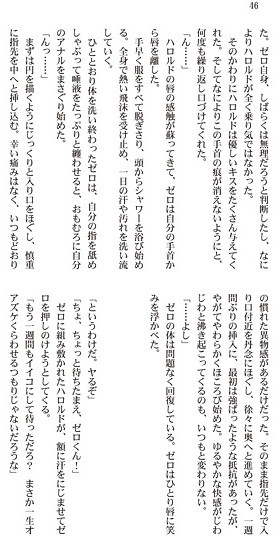 46
た。ゼロ自身、しばらくは無理だろうと判断したし、なに
よりハロルドが全く乗り気ではなかった。
そのかわりにハロルドは優しいキスをたくさん与えてく
れた。そしてなによりこの手首の痕が消えないようにと、
何度も繰り返し口づけてくれた。
「んっ……」
ハロルドの唇の感触が蘇ってきて、ゼロは自分の手首か
ら唇を離した。
手早く服をすべて脱ぎさり、頭からシャワーを浴び始め
る。全身で熱い飛沫を受け止め、一日の汗や汚れを洗い流
していく。
ひととおり体を洗い終わったゼロは、自分の指を舐め
しゃぶって唾液をたっぷりと纏わせると、おもむろに自分
のアナルをまさぐり始めた。
「んっ……」
まずは円を描くようにじっくりと入り口をほぐし、慎重
に指先を中へと挿し込む。幸い痛みはなく、いつもどおり
の慣れた異物感があるだけだった。そのまま指先だけで入
り口付近を丹念にほぐし、徐々に奥へと進めていく。一週
間ぶりの挿入に、最初は強ばったような抵抗があったが、
やがてやわらかくほころび始めた。ゆるやかな快感がじわ
じわと沸き起こってくるのも、いつもと変わりない。
「……よし」
ゼロの体は問題なく回復している。ゼロはひとり唇に笑
みを浮かべた。
「というわけだ。ヤるぞ」
「ちょ、ちょっと待ちたまえ、ゼロくん！」
ゼロに組み敷かれたハロルドが、額に汗をにじませてゼ
ロを押しのけようとしてくる。
「もう一週間もイイコにして待っただろ？　まさか一生オ
アズケくらわせるつもりじゃないだろうな」